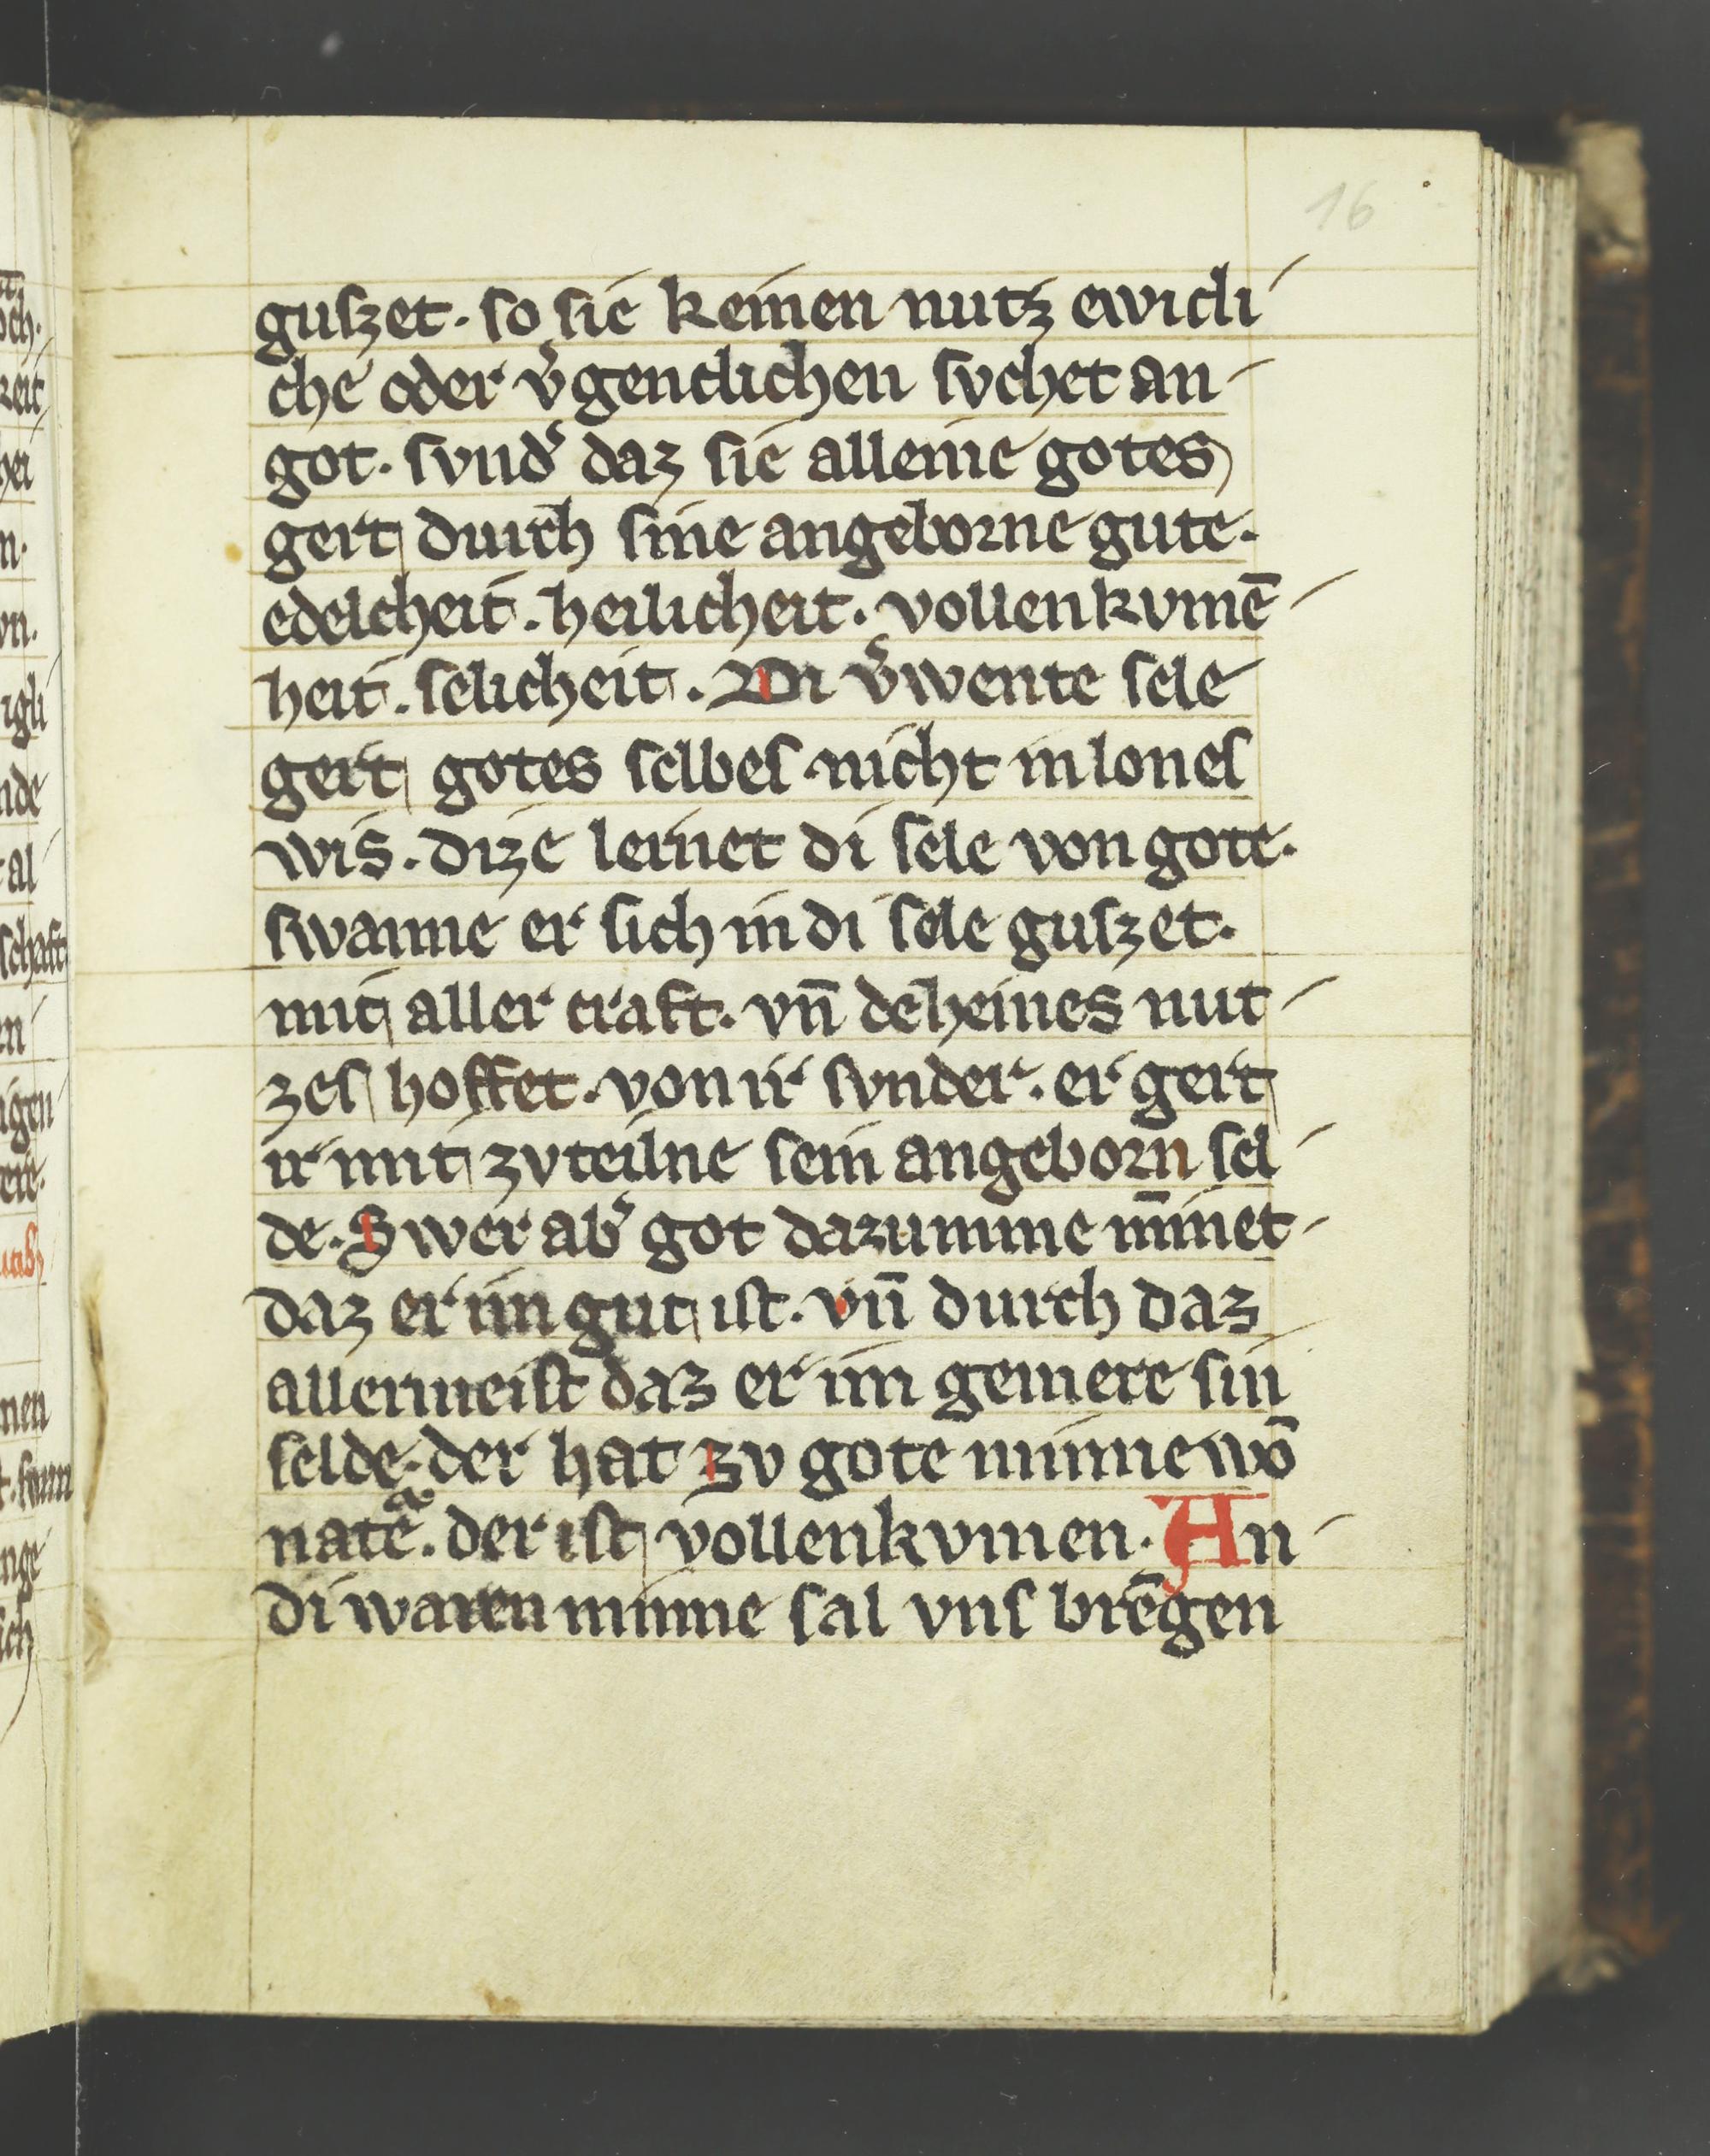 16
guszet. so sie keinen nutz ewicli
che oder v͛genclichen svchet an
got. svnd͛ daz sie alleine gotes
gert durch sine angeborne gute.
edelcheit. heilicheit. vollenkvmē
heit. selicheit. Di v͛wente sele
gert gotes selbes. nicht in lones
wis. dize lernet di sele von gote.
swanne er sich in di sele guszet.
mit aller craft. vn̄ deheines nut
zes hoffet. von ir svnder. er gert
ir mit zv teilne sein angeborn sel
de. Swer ab͛ got dazumme m̄inet
daz er im gut ist. vn̄ durch daz
allermeist daz er im gemere sin
selde. der hat zv gote minne wō
natē. der ist vollenkvmen. An
di waren minne sal vns brēgen